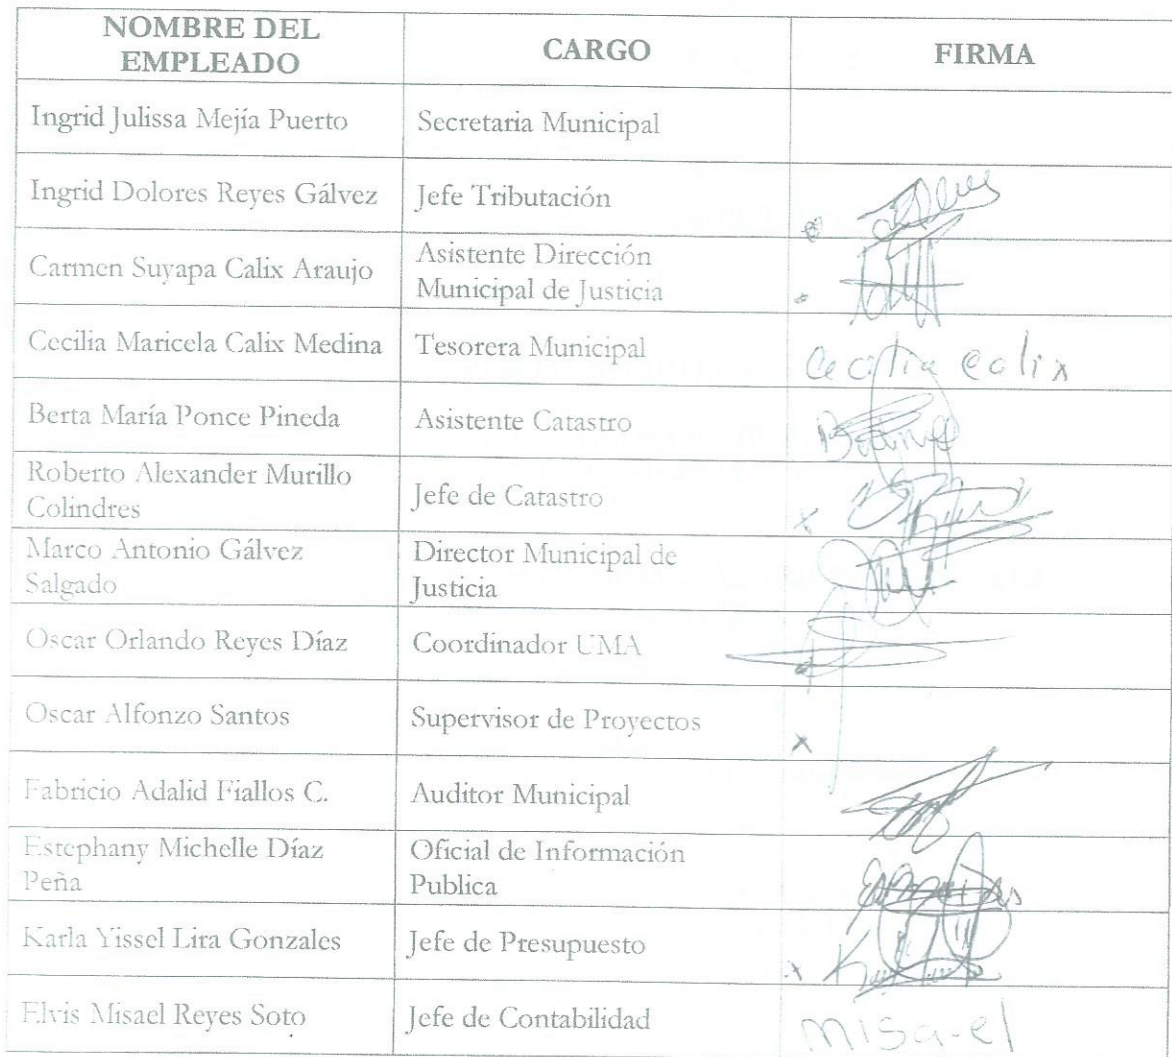 NOMBRE DEL
EMPLEADO
CARGO
FIRMA
Ingrid Julissa Mejía Puerto
Secretaria Municipal
Ingrid Dolores Reyes Gálvez
Jefe Tributación
Carmen Suyapa Calix Araujo
Asistente Dirección
Municipal de Justicia
Cecilia Maricela Calix Medina
Tesorera Municipal
Cecilia Calix
Berta María Ponce Pineda
Asistente Catastro
Roberto Alexander Murillo
Colindres
Jefe de Catastro
x
Marco Antonio Gálvez
Salgado
Director Municipal de
Justicia
Oscar Orlando Reyes Díaz
Coordinador UMA
Oscar Alfonzo Santos
Supervisor de Proyectos
x
Fabricio Adalid Fiallos C.
Auditor Municipal
Estephany Michelle Díaz
Peña
Oficial de Información
Publica
Karla Yissel Lira Gonzales
Jefe de Presupuesto
x
Elvis Misael Reyes Soto
Jefe de Contabilidad
Misa-el